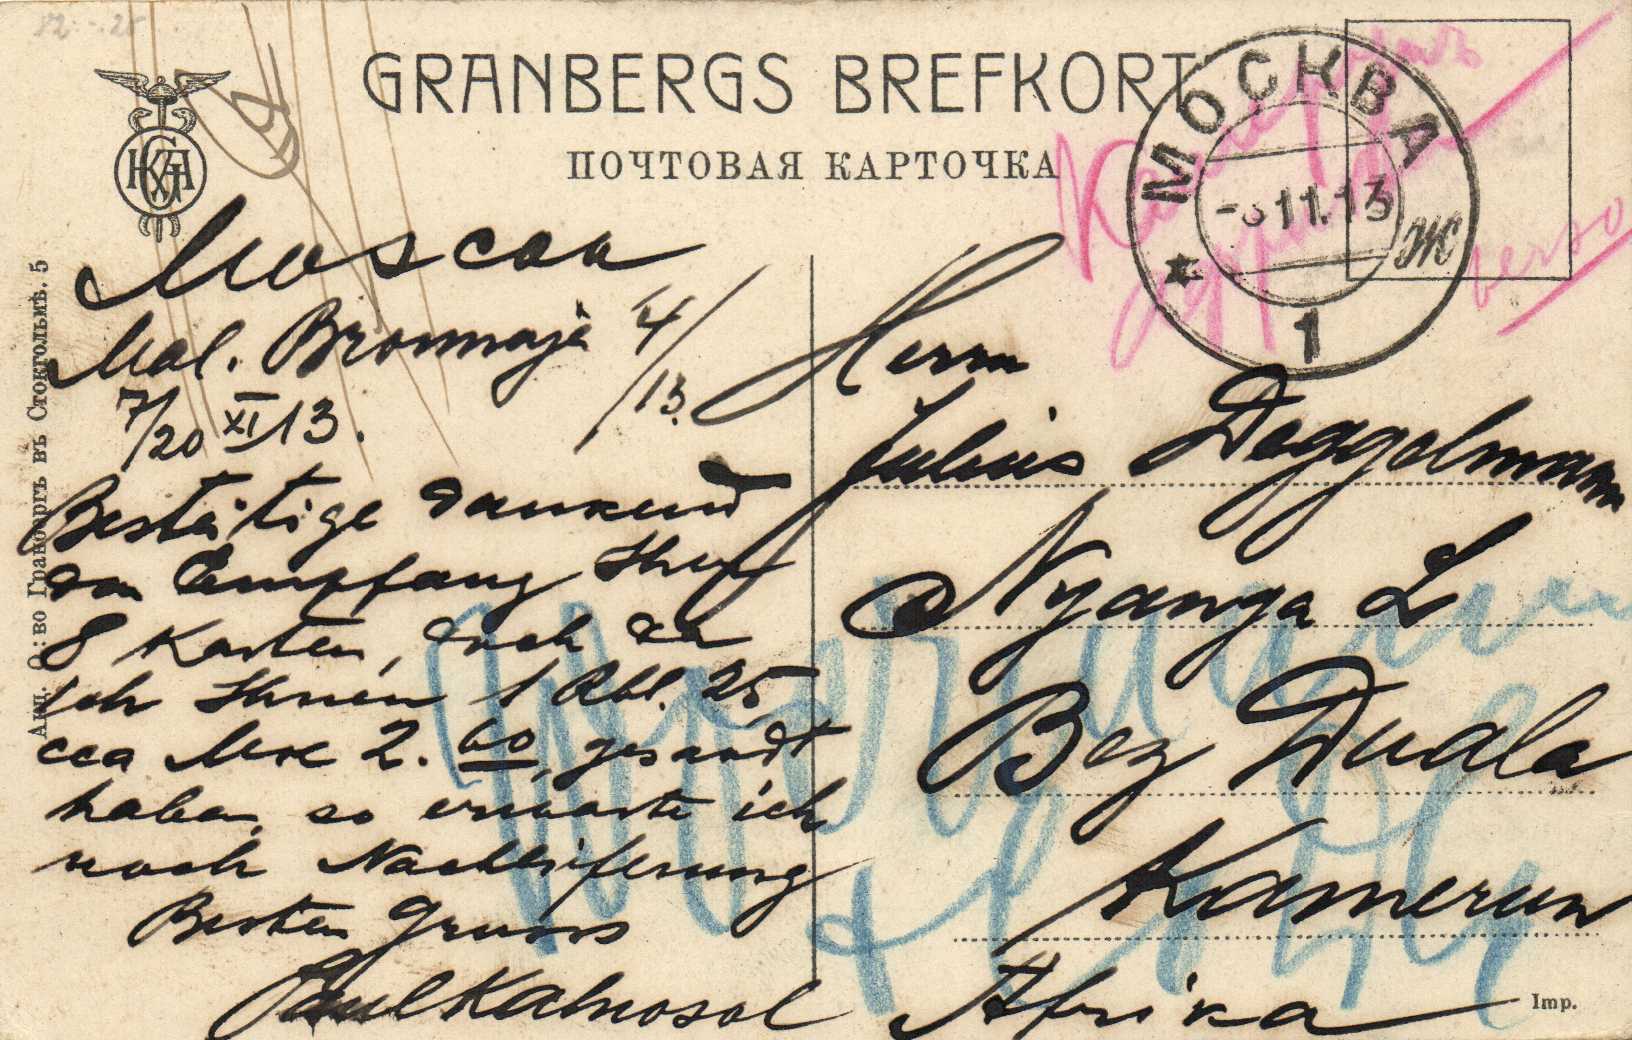 GRANBERGS BREFKORT
ПОЧТОВАЯ КАРТОЧКА
МОСКВА
11.13
1
verso
Акц. О:во Гранбергъ въ Стокгольмѣ. 5
Moscau
Mal. Bronnaja 4/13.
7/20 XI 13.
Bestätige dankend
den Empfang Ihrer
8 Karten, doch da
ich Ihnen 1 Rbl. 25
cca Mrk 2. 60, gesandt
haben, so erwarte ich
noch Nachlieferung
Besten Gruss
Paul
Herrn
Julius Deggelmann
Nyanga L
Bez Duala
Kamerun
Afrika
Imp.